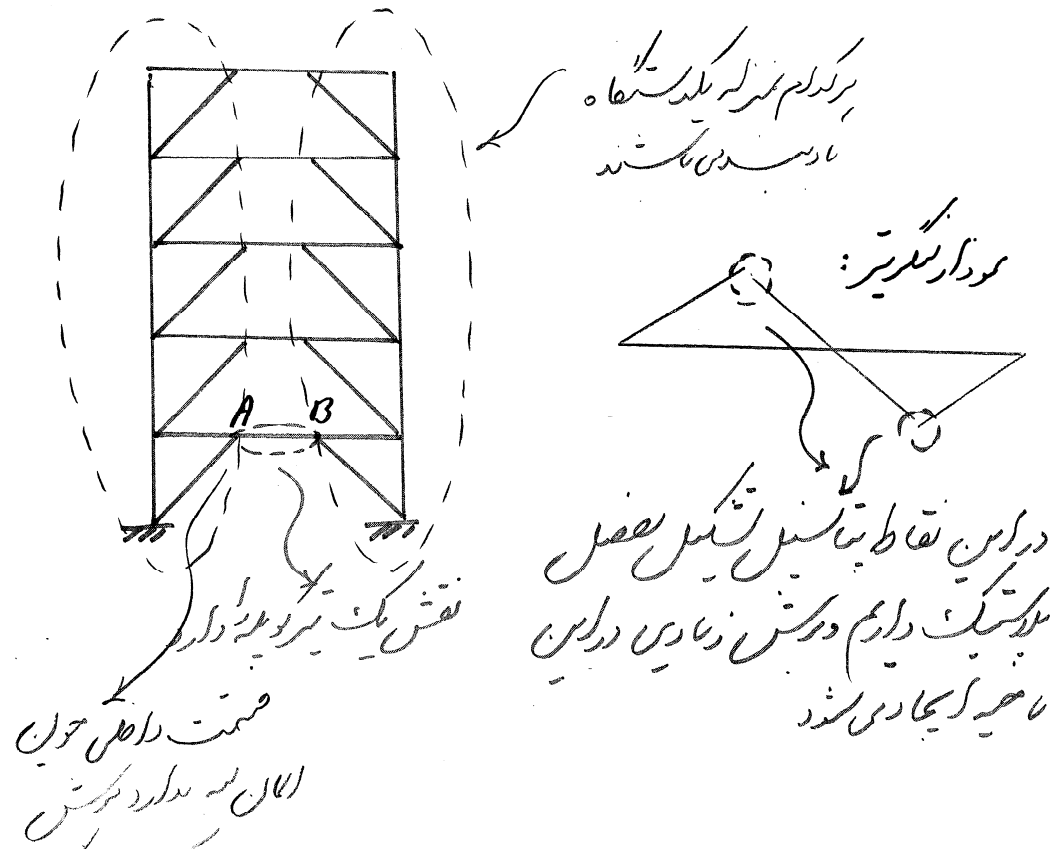 هرکدام بمنزله یکدستگاه
بادبندی باشند
نمودار لنگر تیر:
A B
در این نقاط پتانسیل تشکیل مفصل
پلاستیک داریم و برش زیادی در این
ناحیه ایجاد می شود
نقش یک تیر کوپله را دارد
قسمت داخلی چون
المان ندارد برش